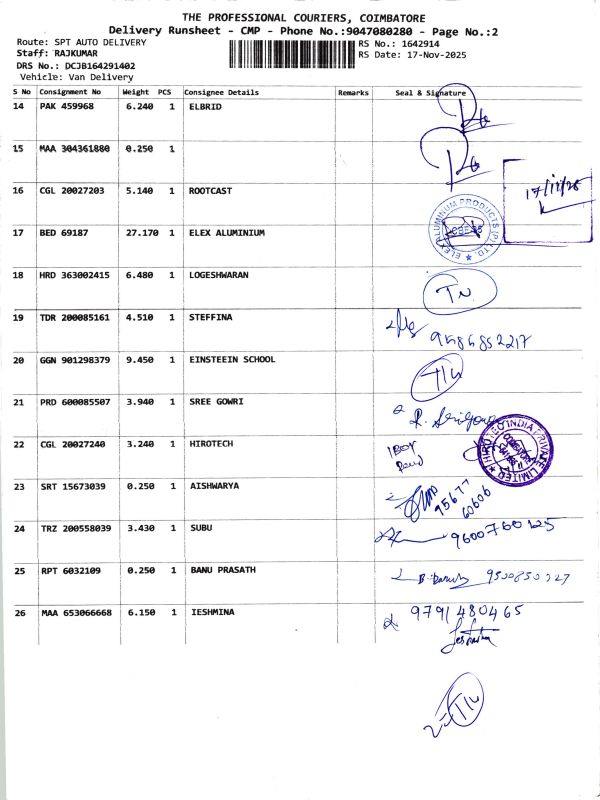 THE PROFESSIONAL COURIERS, COIMBATORE
Delivery Runsheet - CMP - Phone No.:9047080280 - Page No.:2
Route: SPT AUTO DELIVERY
Staff: RAJKUMAR
DRS No.: DCJB164291402
Vehicle: Van Delivery
RS No.: 1642914
RS Date: 17-Nov-2025
S No Consignment No Weight PCS Consignee Details Remarks Seal & Signature
14 PAK 459968 6.240 1 ELBRID
15 MAA 304361880 0.250 1
16 CGL 20027203 5.140 1 ROOTCAST
17/11/25
17 BED 69187 27.170 1 ELEX ALUMINIUM
ELEX ALUMINIUM PRODUCTS (P) LTD.
18 HRD 363002415 6.480 1 LOGESHWARAN
19 TDR 200085161 4.510 1 STEFFINA
9586852217
20 GGN 901298379 9.450 1 EINSTEEIN SCHOOL
21 PRD 600085507 3.940 1 SREE GOWRI
22 CGL 20027240 3.240 1 HIROTECH
1 Box
HIROTEC INDIA PRIVATE LIMITED
23 SRT 15673039 0.250 1 AISHWARYA
95677
60606
24 TRZ 200558039 3.430 1 SUBU
9600760125
25 RPT 6032109 0.250 1 BANU PRASATH
26 MAA 653066668 6.150 1 IESHMINA
9791480465